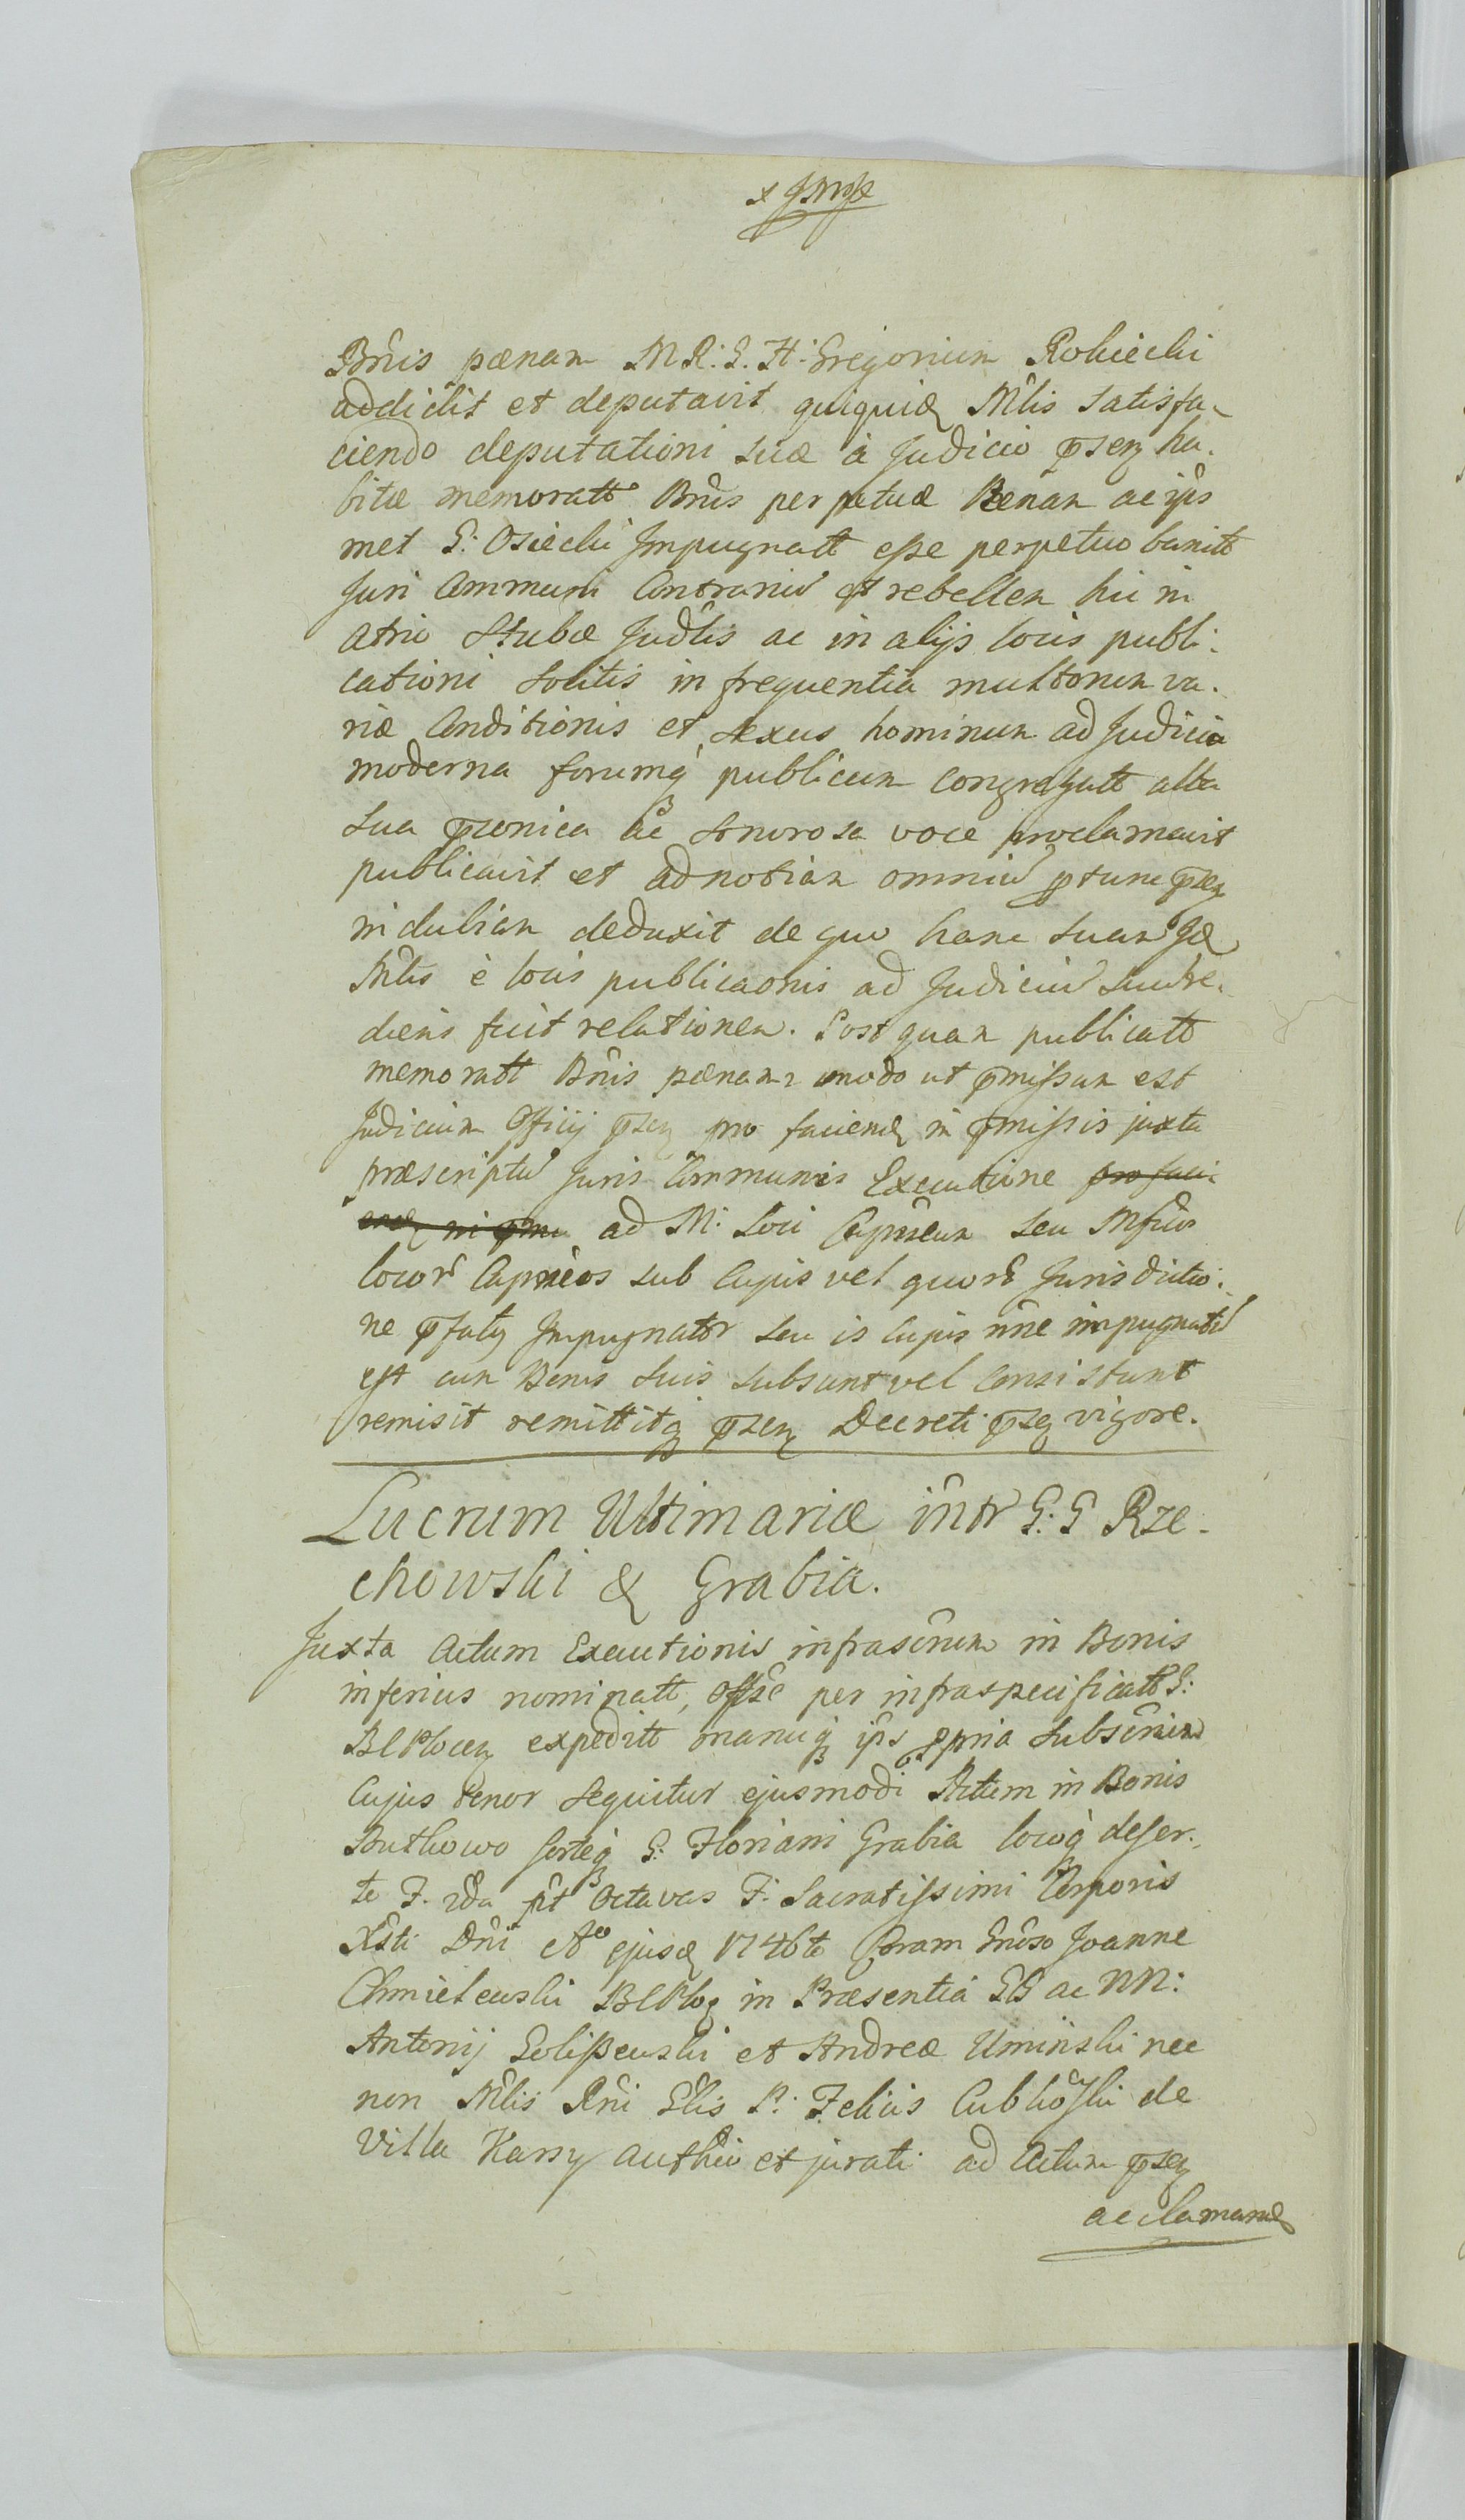 Bñis pœnam M R: G. H: Gregorium Robiecki
addidit et deputavit quiquid Mlis Satisfa-
ciendo deputationi suæ à Judicio pseñ ha-
bitæ memoratt Bñis perpetuæ Pœnam ac ips
met G: Osiecki Impugnatt esse perpetuo banitt
Juri Communi Contrariũ et rebellem hic in
atrio Stubæ Judlis ac in alijs locis publi-
cationi Solitis in frequentia multorum va-
riæ Conditionis et Sexus hominum ad Judicia
moderna forumq publicum congregatt alta
Sua præconica ac Sonorosa voce proclamavit
publicavit et ad notiam omniũ ptunc pseñ
indubiam deduxit de quo hanc Suam Id
Mlis è locis publicaonis ad Judiciũ Suũ re-
diens fecit relationem. Post quam publicatt
memoratt Bñis pœnam modo ut pmissum est
Judicium Officij pseñ pro faciend in pmissis juxta
præscriptũ Juris Communis Executione pro faci-
end in pmi ad M: Loci Capneum Seu Mficos
locorũ Capneos sub Cujus vel quorũ Jurisdictio-
ne pfaty Impugnator Seu is Cujus nñe impugnatũ
est cum Bonis Suis Subsunt vel Consistunt
remisit remittitq pseñ Decreti pseñ vigore.
Lucrum Ultimariæ intr G: G Rze-
chowski & Grabia.
Juxta Actum Executionis infrascrium in Bonis
inferius nominatt, Offse per infraspecificatt G:
BCPlocen expeditt manuq ips ppria Subscrium
Cujus tenor Sequitur ejusmodi Actum in Bonis
Buthowo Sorteq G: Floriani Grabia locoq deser-
to F. 2da pt Octavas F: Sacratissimi Corporis
Xsti Dñi Aº ejusd 1746to Coram Gnoso Joanne
Chmielewski BCPloc in Præsentia GG ac NN:
Antonij Goliszewski et Andreæ Uminski nec
non Mlis Rñi Glis P: Felicis Cubkoski de
Villa Karsy authci et jurati ad Actum pseñ
acclamand